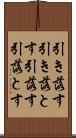 引き落す
引き落と
す引落す
引落とす